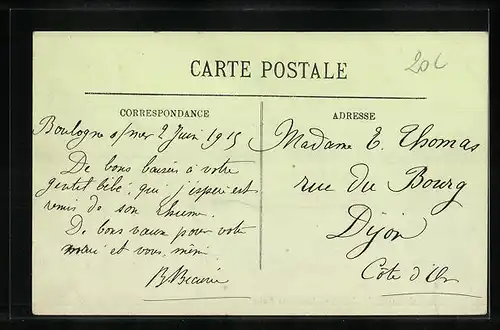 CARTE POSTALE
20c
CORRESPONDANCE
Boulogne s/mer 2 Juin 1915
De bons baisers à votre
gentil bébé, qui j'espère est
remis de son rhume.
De bons vœux pour votre
mari et vous même
ADRESSE
Madame E. Thomas
rue du Bourg
Dijon
Côte d'Or